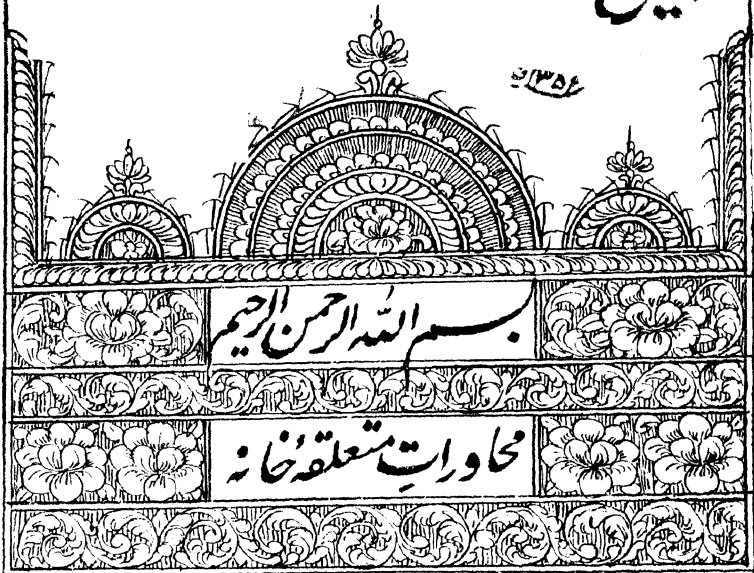 ۱۳۵۶
بسم الله الرحمن الرحیم
محاوراتِ متعلقۂ خانه